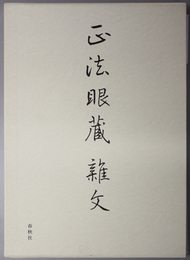 正法眼蔵雑文
春秋社